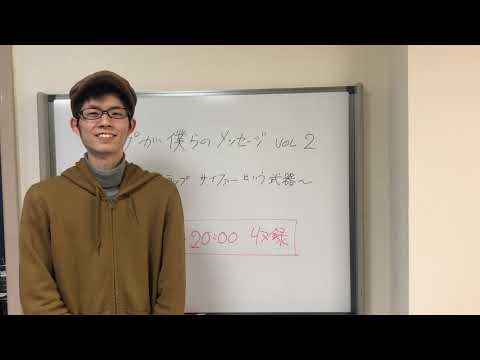 プが僕らのメッセージ VOL 2
ラップ サイファーという武器〜
20:00 収録